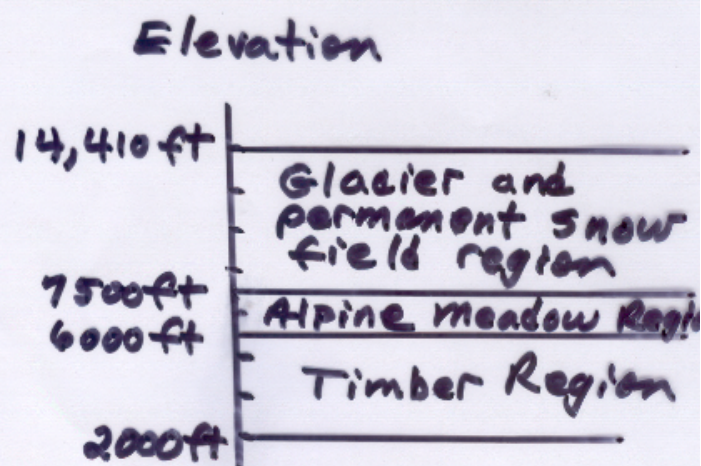 Elevation
14,410 ft
Glacier and
permanent snow
field region
7500ft
Alpine meadow Regi
6000ft
Timber Region
2000ft